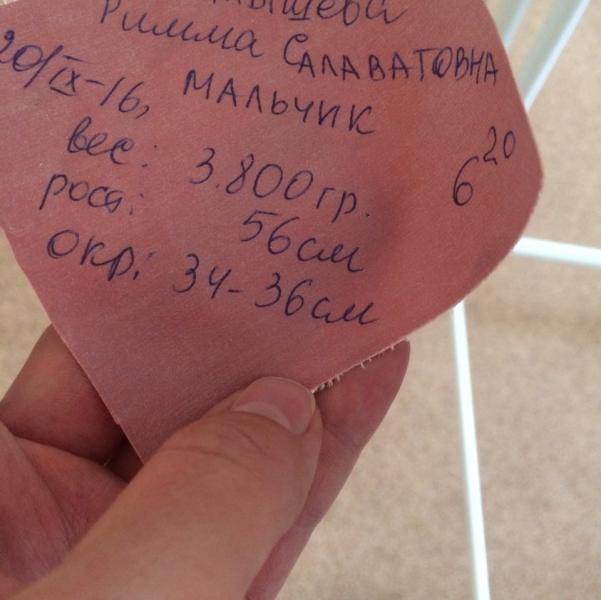 Римма Салаватовна
20/IX-16, мальчик
вес: 3.800гр. 6²⁰
рост: 56см
окр: 34-36см